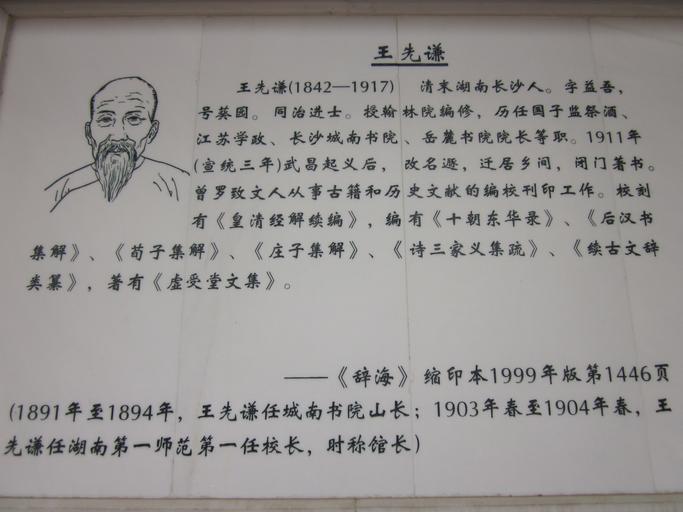 王先谦
王先谦(1842—1917) 清末湖南长沙人。字益吾,
号葵园。同治进士。授翰林院编修,历任国子监祭酒、
江苏学政、长沙城南书院、岳麓书院院长等职。1911年
(宣统三年)武昌起义后,改名遯,迁居乡间,闭门著书。
曾罗致文人从事古籍和历史文献的编校刊印工作。校刻
有《皇清经解续编》,编有《十朝东华录》、《后汉书
集解》、《荀子集解》、《庄子集解》、《诗三家义集疏》、《续古文辞
类纂》,著有《虚受堂文集》。
——《辞海》缩印本1999年版第1446页
(1891年至1894年,王先谦任城南书院山长;1903年春至1904年春,王
先谦任湖南第一师范第一任校长,时称馆长)